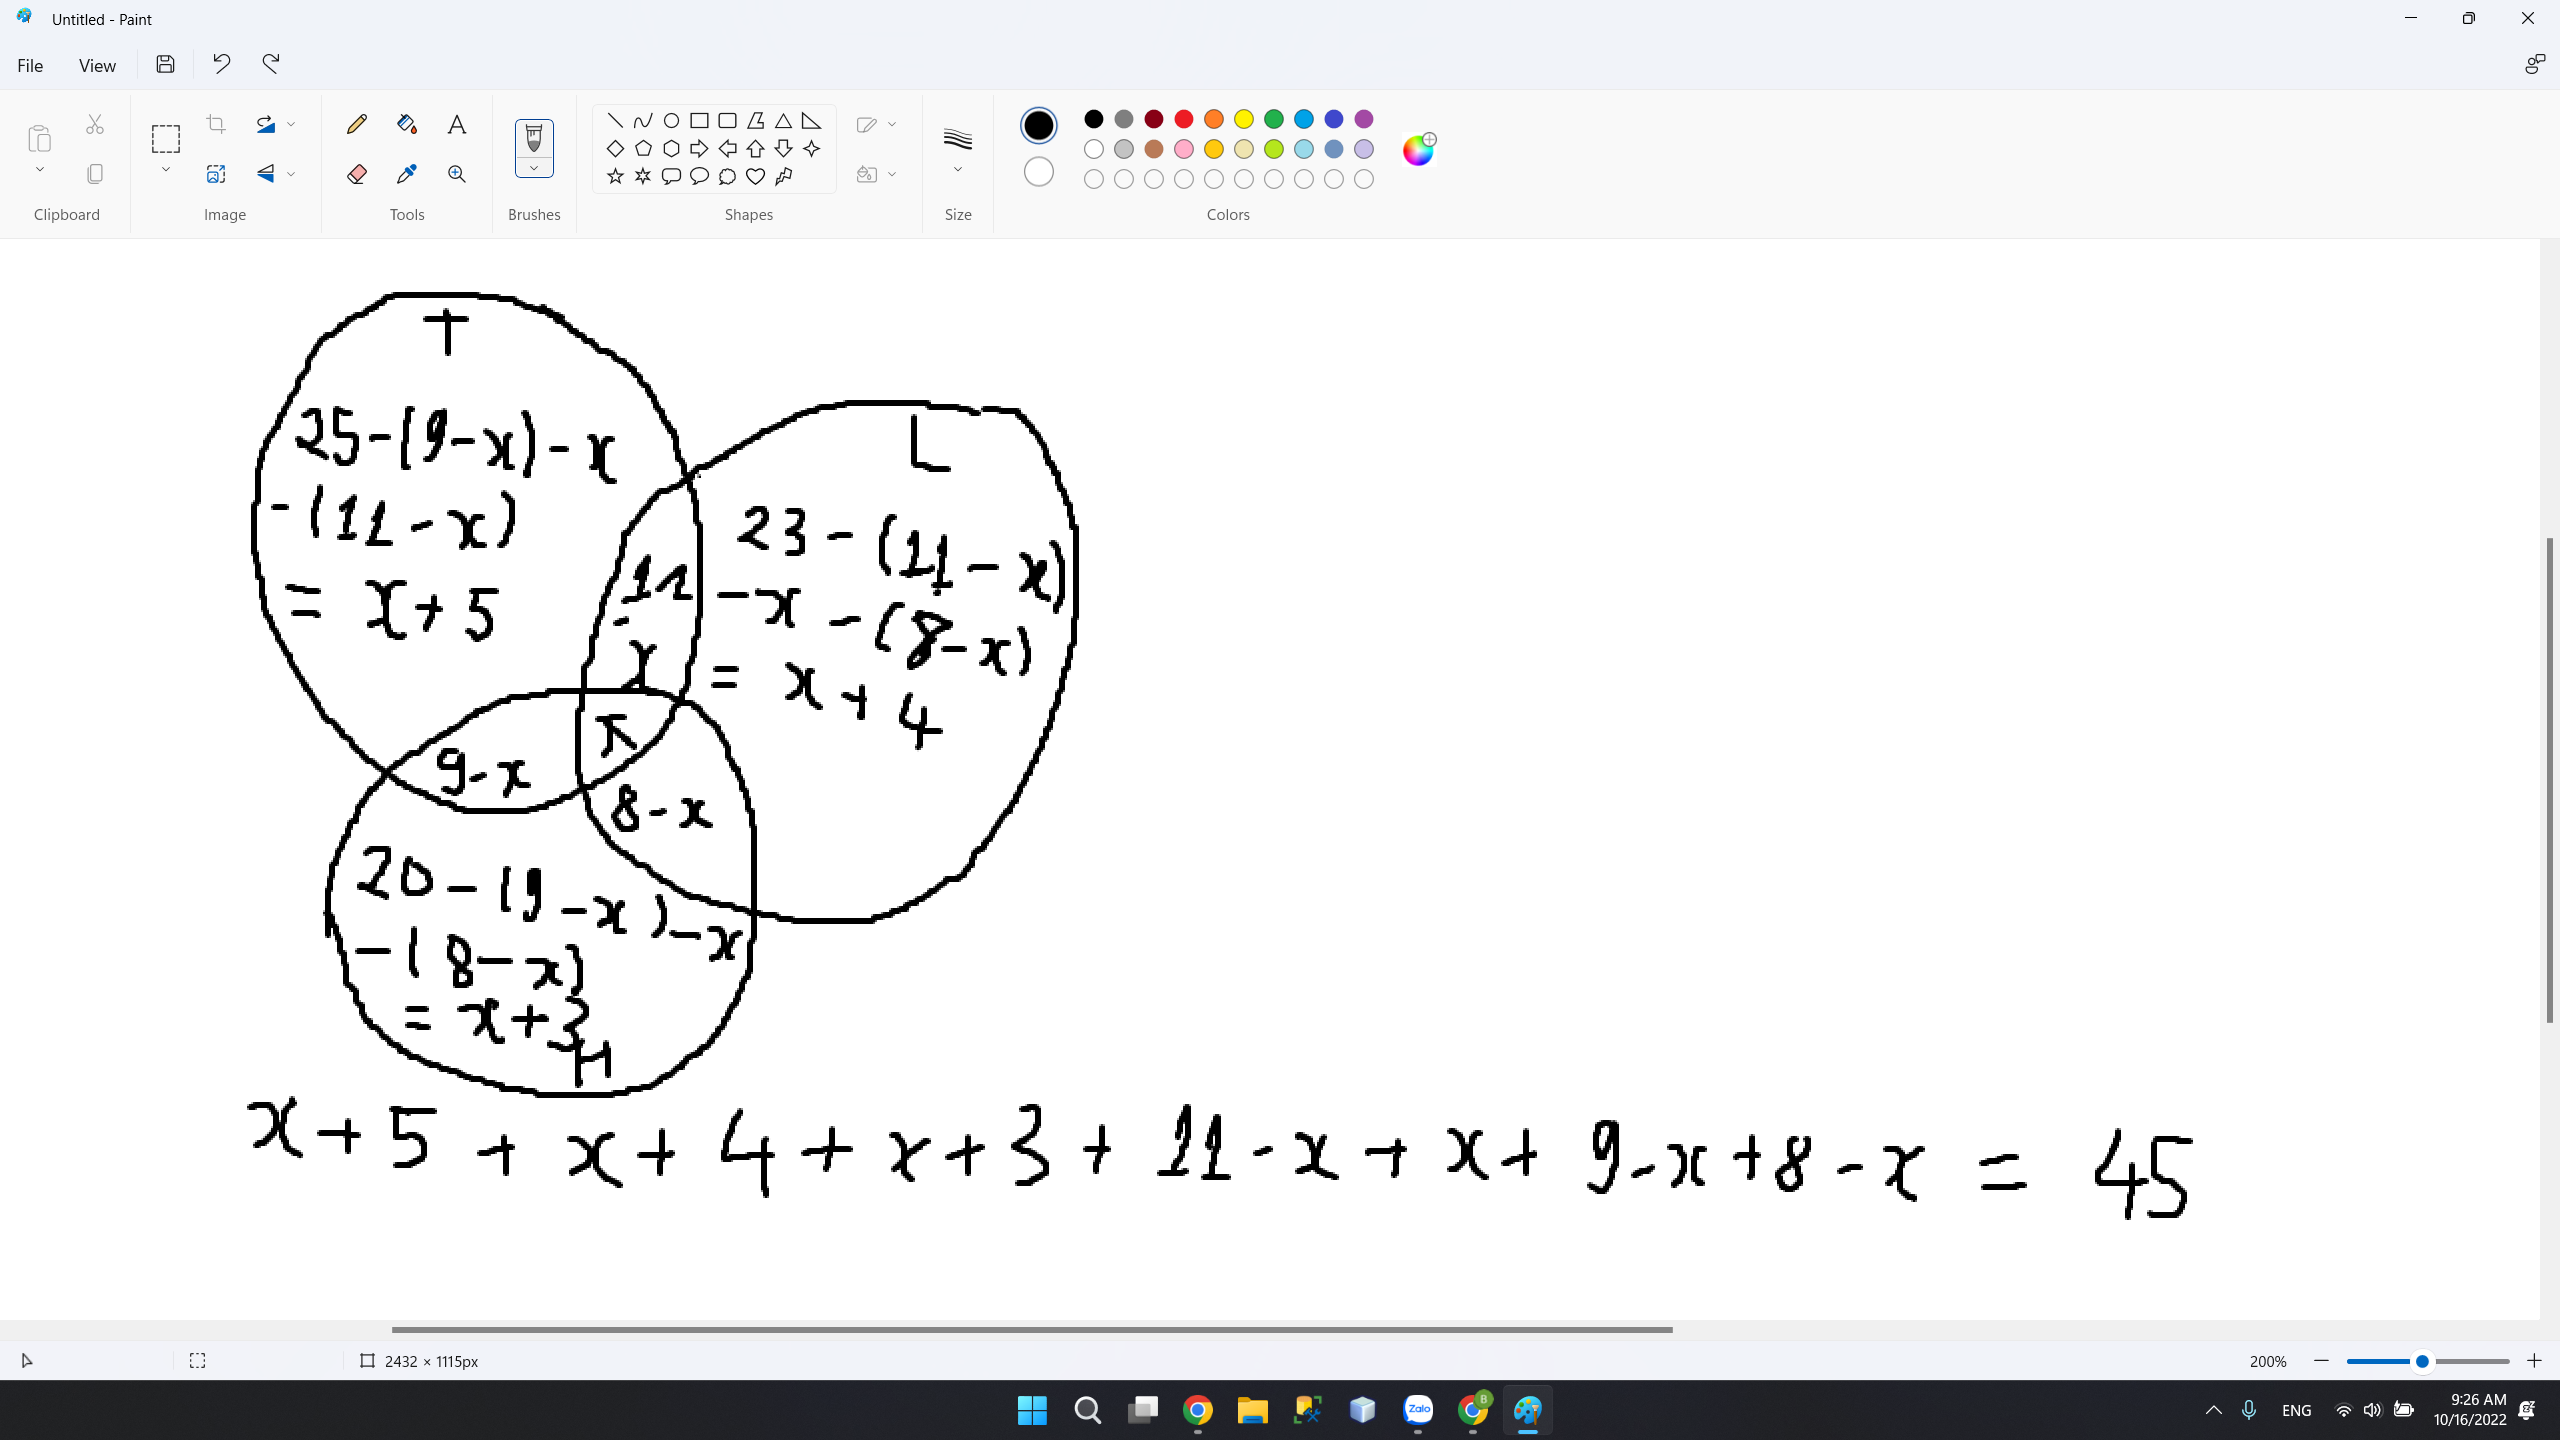 Untitled - Paint
File View
Clipboard Image Tools Brushes Shapes Size Colors
T
25-(9-x)-x
-(11-x)
= x+5
L
23-(11-x)
-x-(8-x)
= x+4
11
-
x
x
9-x
8-x
20-(9-x)-x
-(8-x)
= x+3
H
x+5+x+4+x+3+11-x+x+9-x+8-x = 45
2432 × 1115px 200%
Zalo B ENG 9:26 AM
10/16/2022